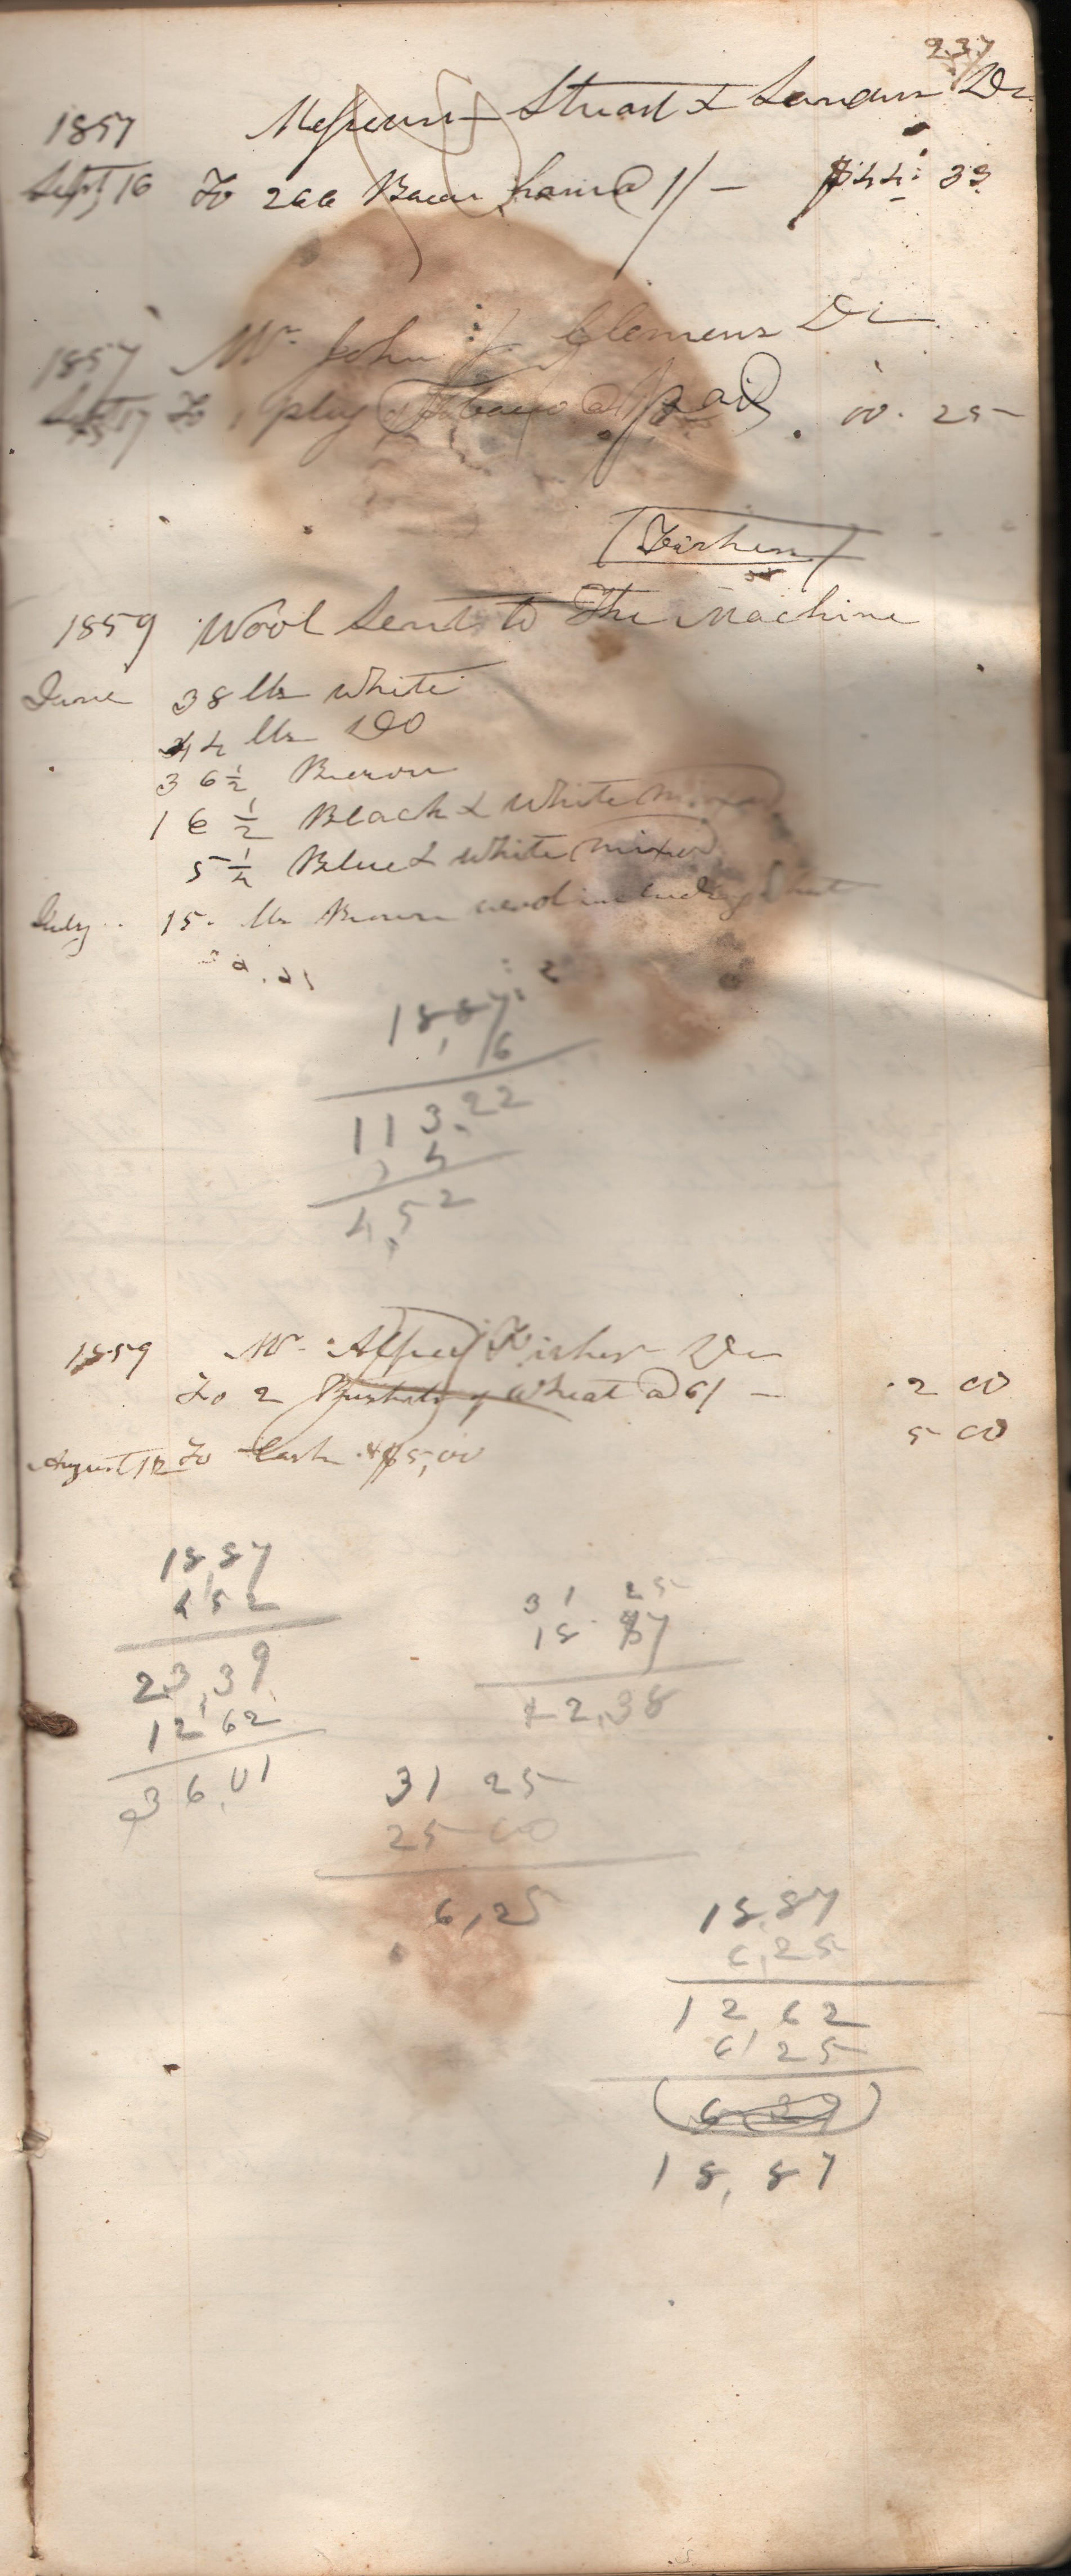 237
1857 Messrs Stuart & Dr
Sept 16 To 266 Bacon hams @ 1/- $44: 33
1857 Mr John J. Clemens Dr
Sept 17 To 1 plug Tobacco @ paid 00. 25
1859 Wool Sent to The Machine
June 38 lbs White
44 lbs Do
36 1/2 Brown
16 1/2 Black & White mixed
5 1/4 Blue & White mixed
July 15. lbs Brown wool including
18,87
6
113,22
4,52
1859 Mr. Alfred Fisher Dr
To 2 Bushels of Wheat @ 6/- 2 00
August 12 To Cash $5,00 5 00
18,87
4,52
23,39
12,62
36,01
31 25
18 87
12,38
31 25
25 00
6,25
18,87
6,25
12,62
6,25
18,87